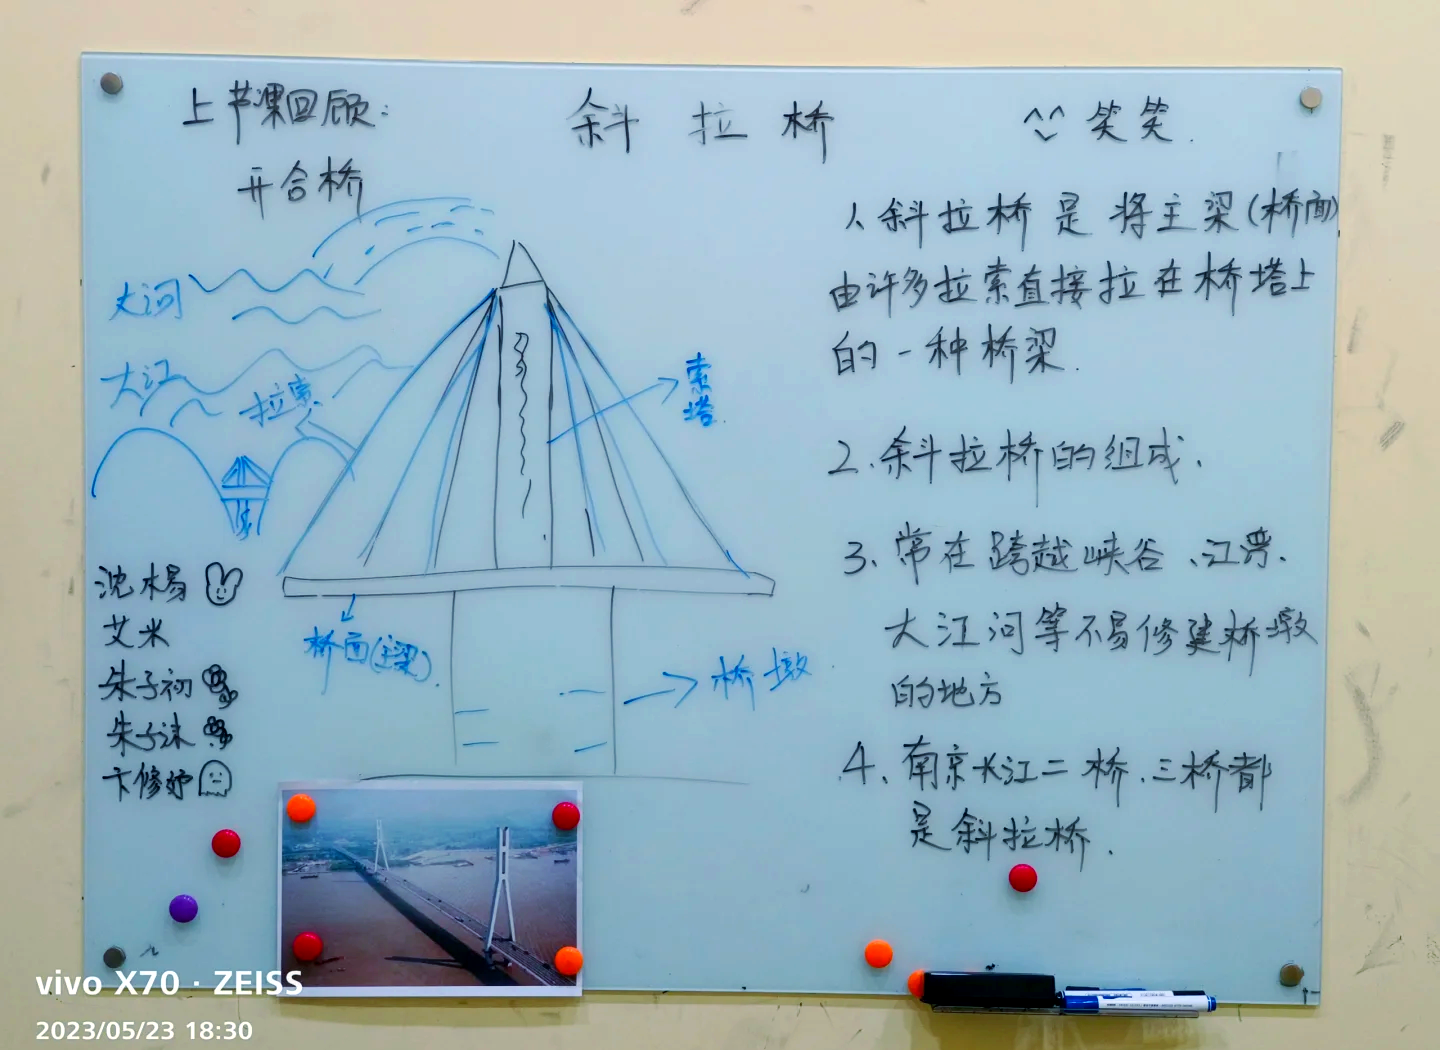 上节课回顾:
开合桥
斜拉桥
笑笑.
1、斜拉桥是将主梁(桥面)
由许多拉索直接拉在桥塔上
的一种桥梁.
2.斜拉桥的组成.
3、常在跨越峡谷、江
大江河等不易修建桥墩
的地方
4、南京长江二桥、三桥都
是斜拉桥.
大河
大江
拉索
索塔.
桥面(主梁).
桥墩
沈木易
艾米
朱子初
朱子沫
卞修
vivo X70 · ZEISS
2023/05/23 18:30